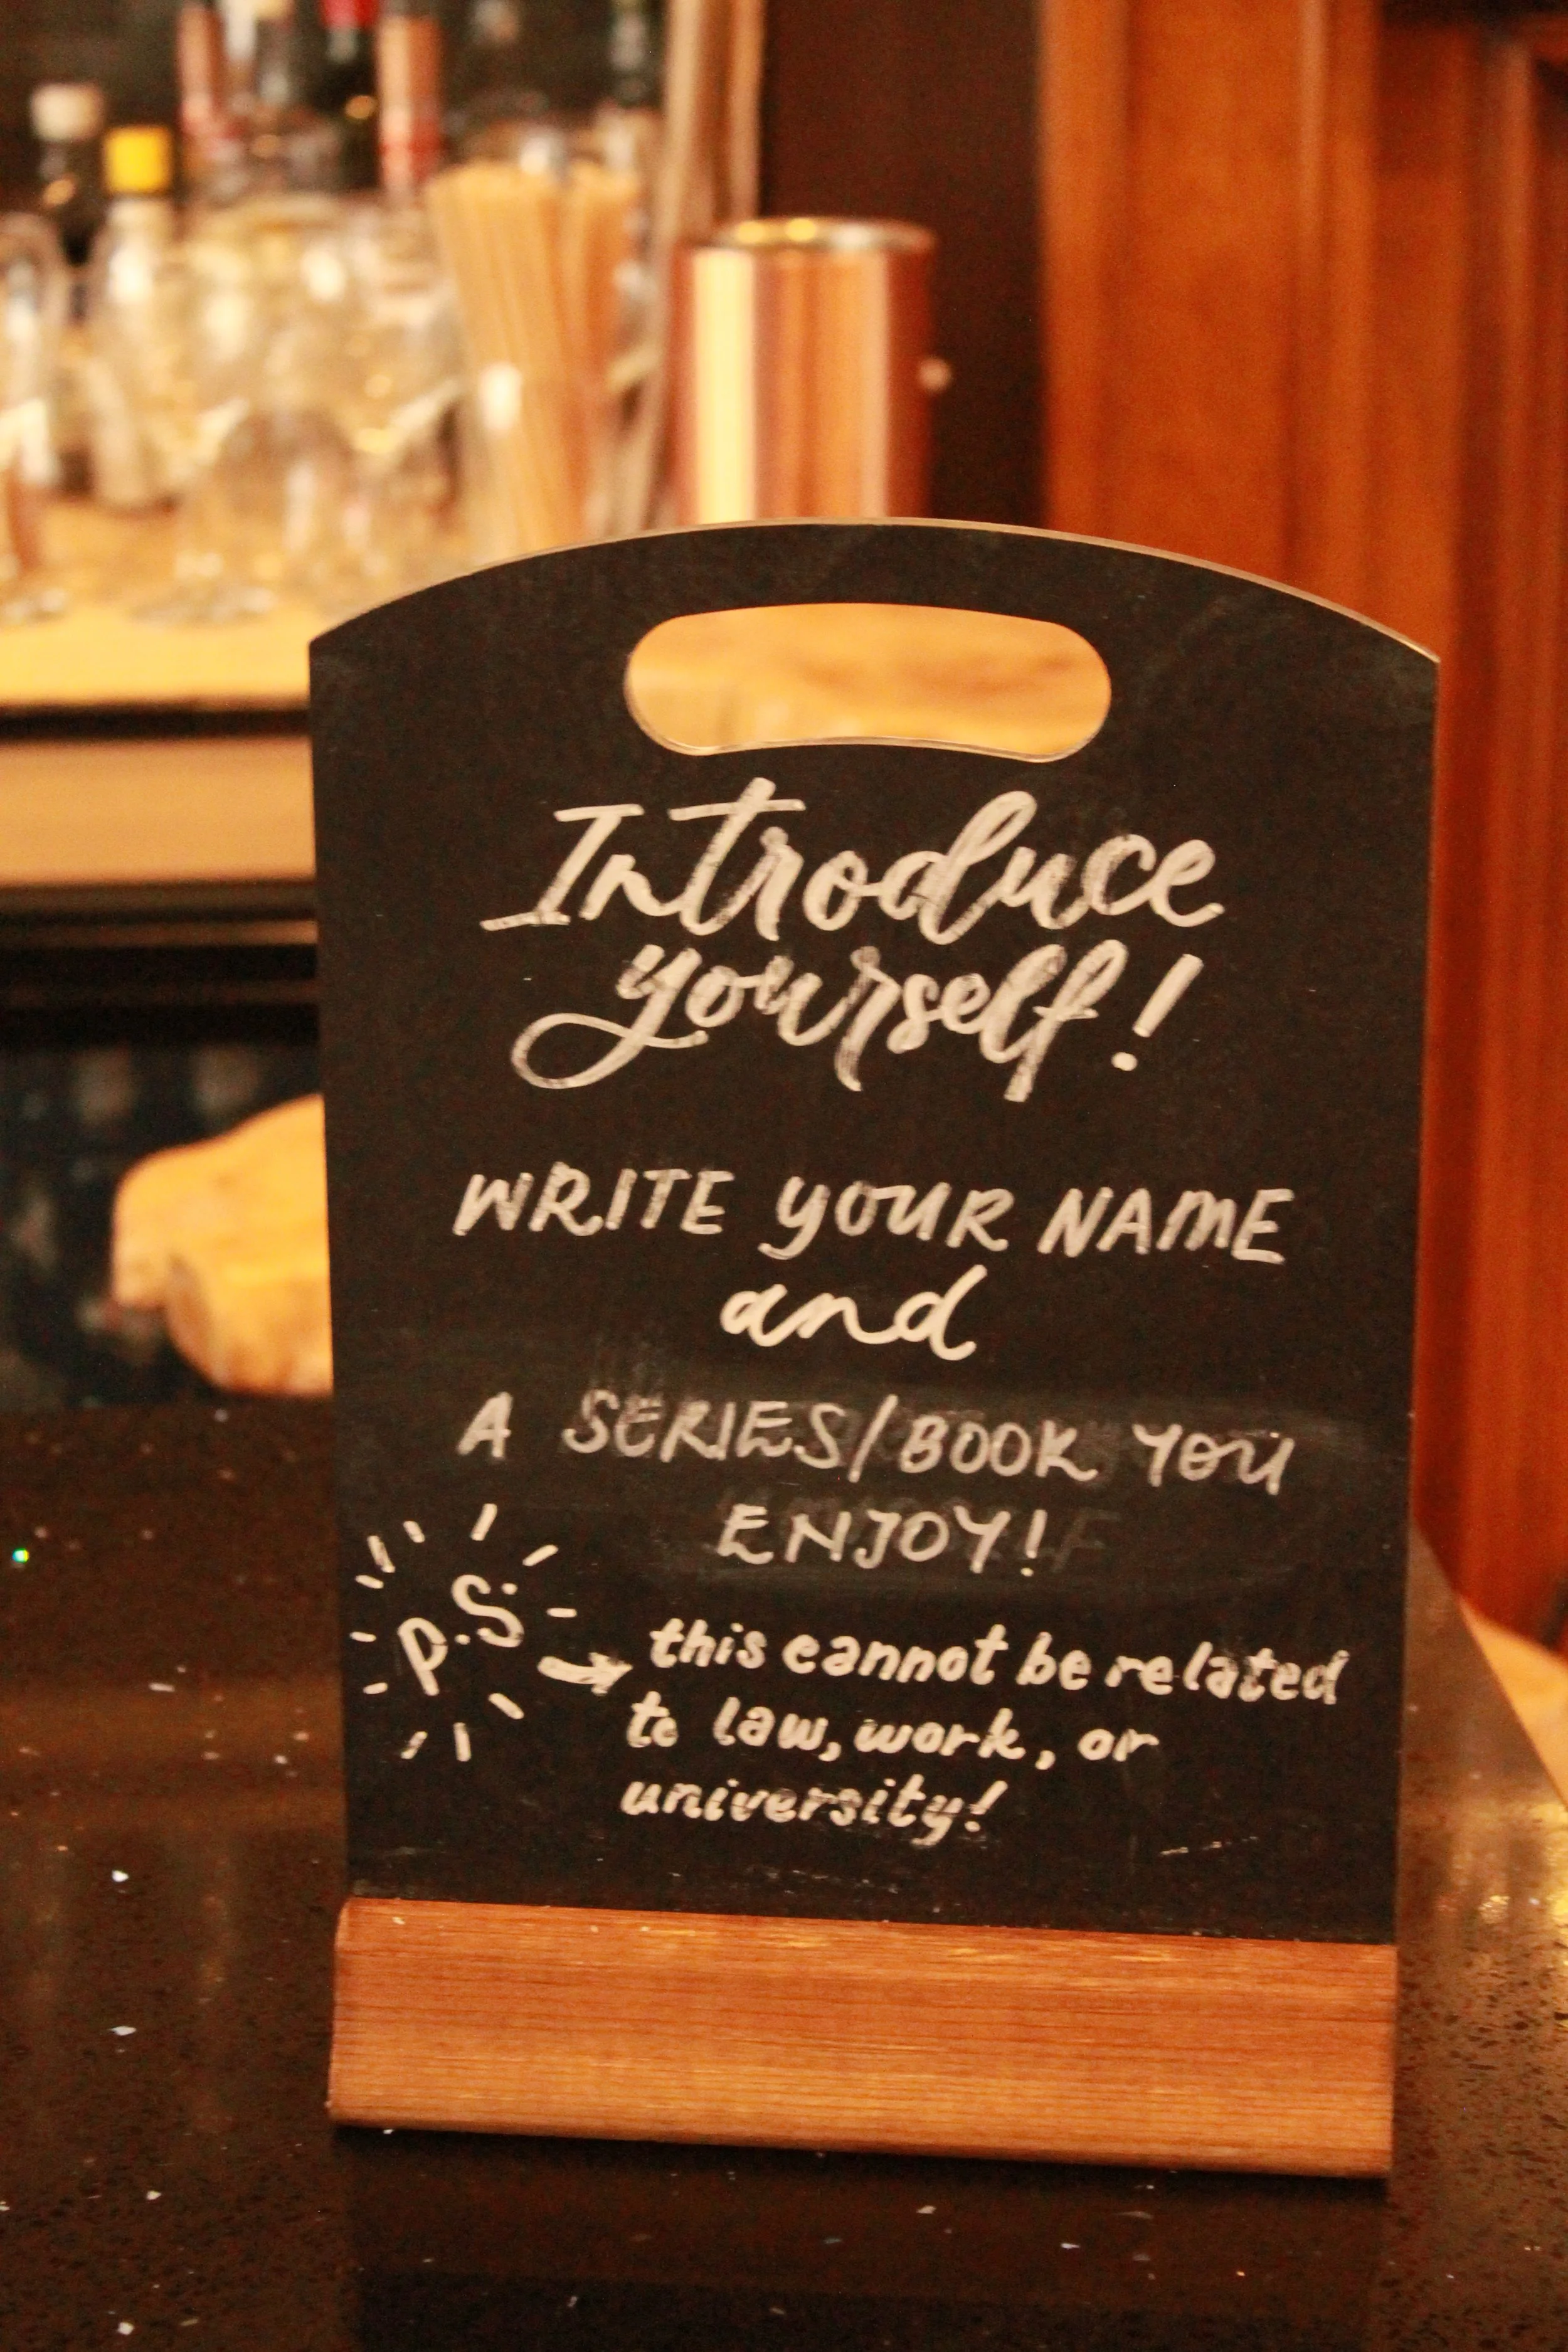 Introduce
yourself!
WRITE YOUR NAME
and
A SERIES/BOOK YOU
ENJOY!
P.S. this cannot be related
to law, work, or
university!